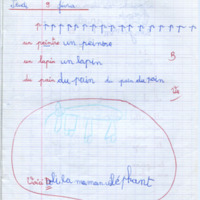 jeudi 9 février
un peintre un peintre
un lapin un lapin
B
du pain du pain du pain du pain
Voici Delila maman éléphant